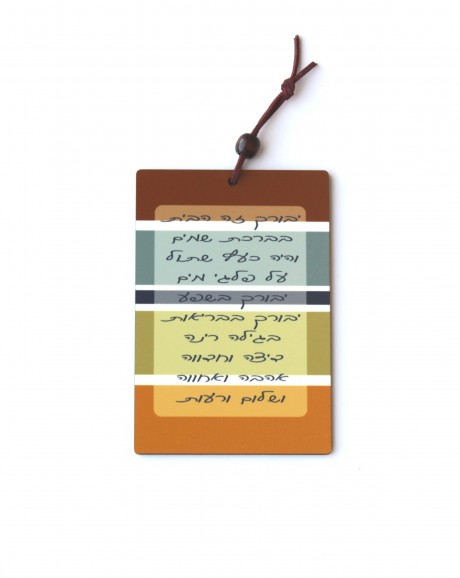 יבורך זה הבית
בברכת שמים
והיה כעץ שתול
על פלגי מים
יבורך בשפע
יבורך בבריאות
בגילה רינה
דיצה וחדווה
אהבה ואחווה
ושלום ורעות